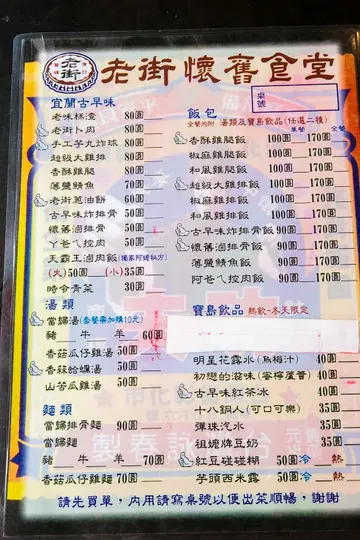 老街
老街懷舊食堂
桌號
宜蘭古早味
老味糕渣 80圓
老街卜肉 80圓
手工芋丸炸球 80圓
超級大雞排 80圓
香酥雞腿 80圓
薄鹽鯖魚 70圓
老街蔥油餅 60圓
古早味炸排骨 50圓
懷舊滷排骨 50圓
丫爸ㄟ控肉 50圓
天霸王滷肉飯(獨家阿嬤秘方)
(大)50圓 (小)35圓
時令青菜 30圓
湯類
當歸湯(套餐需加購10元)
豬 牛 羊 60圓
香菇瓜仔雞湯 50圓
香蒜蛤蠣湯 50圓
山苦瓜雞湯 50圓
麵類
當歸排骨麵 90圓
當歸麵
豬 牛 羊 70圓
香菇瓜仔雞麵 70圓
飯包
全餐均附 湯類及寶島飲品(任選二種)
單餐 全餐
香酥雞腿飯 100圓 170圓
椒麻雞腿飯 100圓 170圓
和風雞腿飯 100圓 170圓
超級雞排飯 100圓 170圓
椒麻雞排飯 100圓 170圓
和風雞排飯 100圓 170圓
古早味炸排骨飯 90圓 170圓
懷舊滷排骨飯 90圓 170圓
薄鹽鯖魚飯 90圓 170圓
阿爸ㄟ控肉飯 90圓 170圓
寶島飲品 熱飲-冬天限定
明星花露水(烏梅汁) 40圓
初戀的滋味(蜜檸蘆薈) 40圓
古早味紅茶冰 40圓
十八銅人(可口可樂) 35圓
彈珠汽水 35圓
祖嬤牌豆奶 35圓
紅豆碰碰糊 50圓 冷 熱
芋頭西米露 50圓 冷 熱
請先買單,內用請寫桌號以便出菜順暢,謝謝